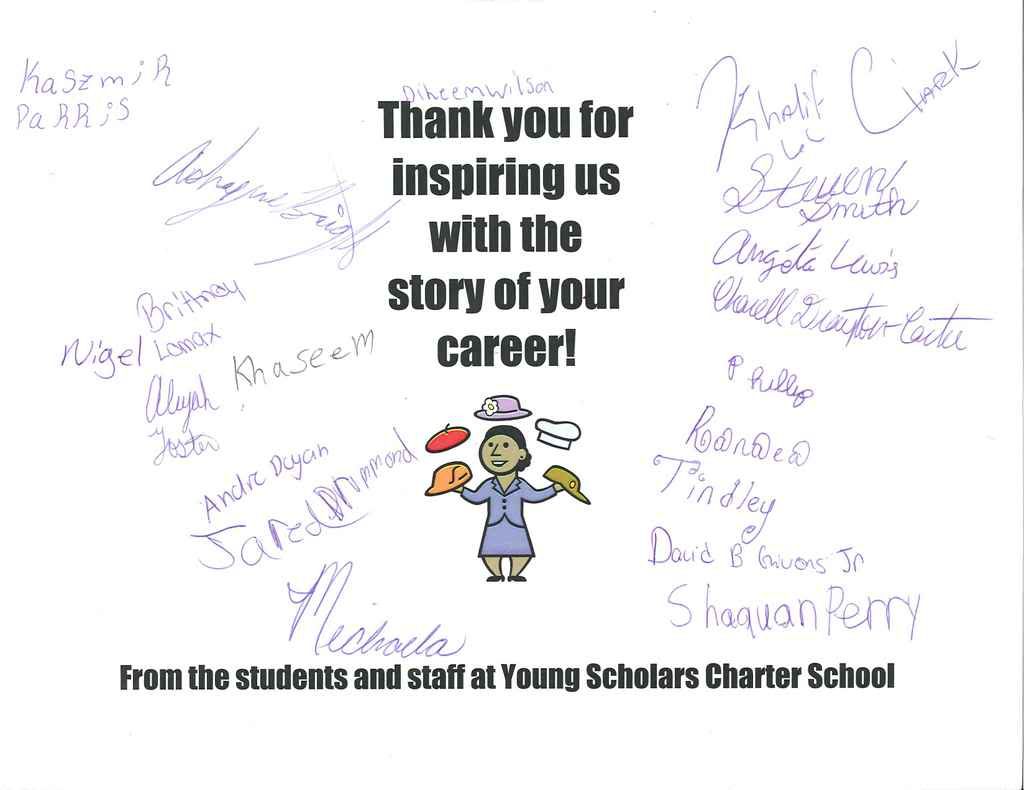 Kaszmir
Parris
Dikeem Wilson
Thank you for
inspiring us
with the
story of your
career!
Khalif Clark
Steven
Smith
Angela Lewis
Charell Drayton-Carter
Brittney
Lomax
Nigel
Khaseem
Aliyah
Foster
Phillip
Andre Dayan
Jared Drummond
Tindley
David B Givens Jr
Shaquan Perry
Michaela
From the students and staff at Young Scholars Charter School